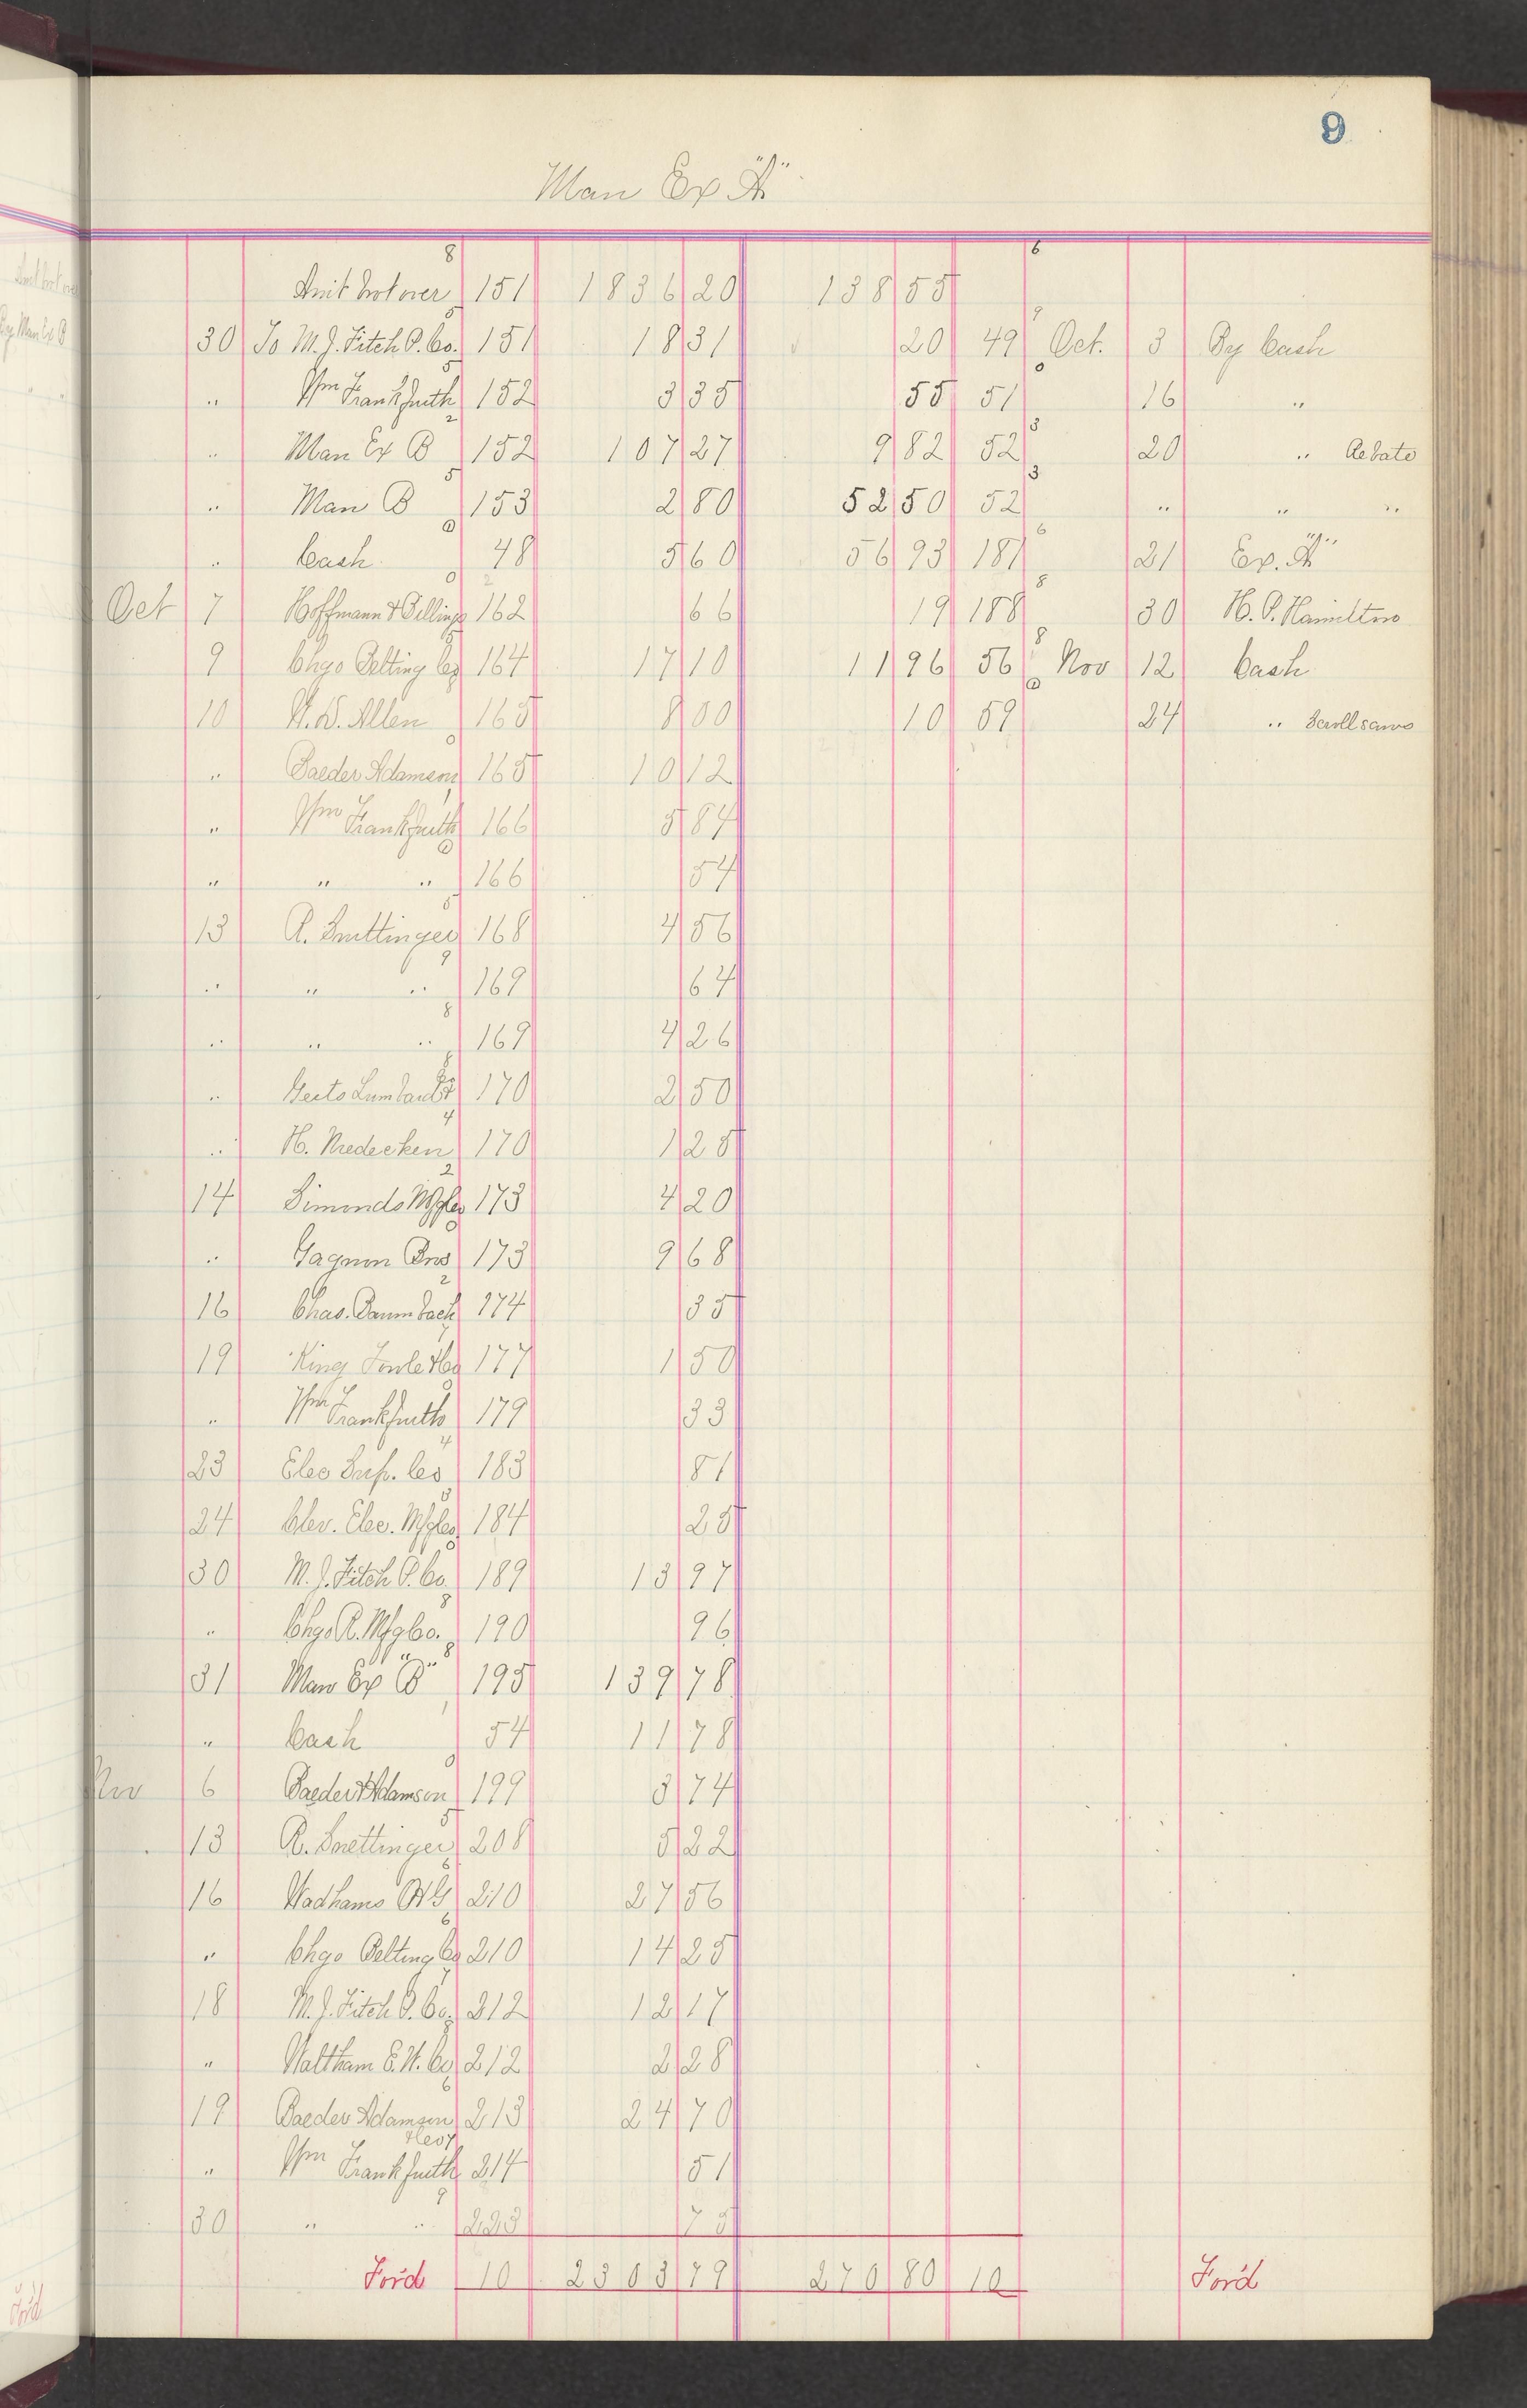 9
Man Ex "A"
8 6
Amt brot over 151 1836 20 138 55
30 To M.J. Fitch P. Co. 151 18 31 20 49 Oct. 3 By Cash
" Wm Frankfurth 152 3 35 55 51 16 "
" Man Ex B 152 107 27 9 82 52 20 " Rebate
" Man B 153 2 80 52 50 52 " " "
" Cash 48 5 60 56 93 187 21 Ex. "A"
Oct 7 Hoffmann & Billings 162 66 19 188 30 H. P. Hamilton
9 Chgo Belting Co 164 17 10 11 96 56 Nov 12 Cash
10 W.D. Allen 165 8 00 10 59 24 " Scroll saws
" Baeder Adamson 165 10 12
" Wm Frankfurth 166 5 84
" " " 166 54
13 R. 168 4 56
" " " 169 64
" " " 169 4 26
" 170 2 50
" H. Niedecken 170 1 25
14 Simonds Mfg Co 173 4 20
" Gagnon Bros 173 9 68
16 Chas. Baumbach 174 35
19 King Co 177 1 50
" Wm Frankfurth 179 33
23 Elec Sup. Co 183 81
24 Clev. Elec. Mfg Co 184 25
30 M.J. Fitch P. Co. 189 13 97
" Chgo R. Mfg Co. 190 96
31 Man Ex "B" 195 139 78
" Cash 54 11 78
Nov 6 Baeder Adamson 199 3 74
13 R. 208 5 22
16 Wadhams 210 27 56
" Chgo Belting Co 210 14 25
18 M.J. Fitch P. Co. 212 12 17
" Waltham E.W. Co 212 2 28
19 Baeder Adamson & Co 213 24 70
" Wm Frankfurth 214 51
30 " " 223 75
Ford 10 2303 79 270 80 10 Ford